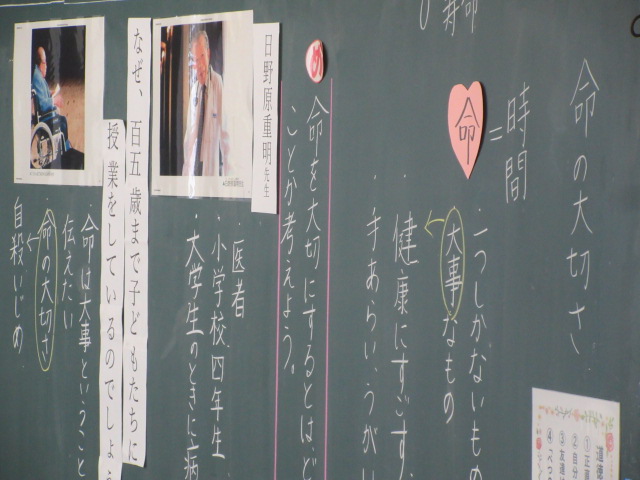 寿命
命の大切さ
時間
＝
命
・一つしかないもの
大事なもの
・健康にすごす
・手あらい、うがい
め
命を大切にするとは、ど
ことか考えよう。
日野原重明先生
・医者
・小学校四年生
・大学生のときに病
なぜ、百五歳まで子どもたちに
授業をしているのでしょう
・命は大事ということ
伝えたい
・命の大切さ
自殺、いじめ
道徳
①正
②自分
③友達
④